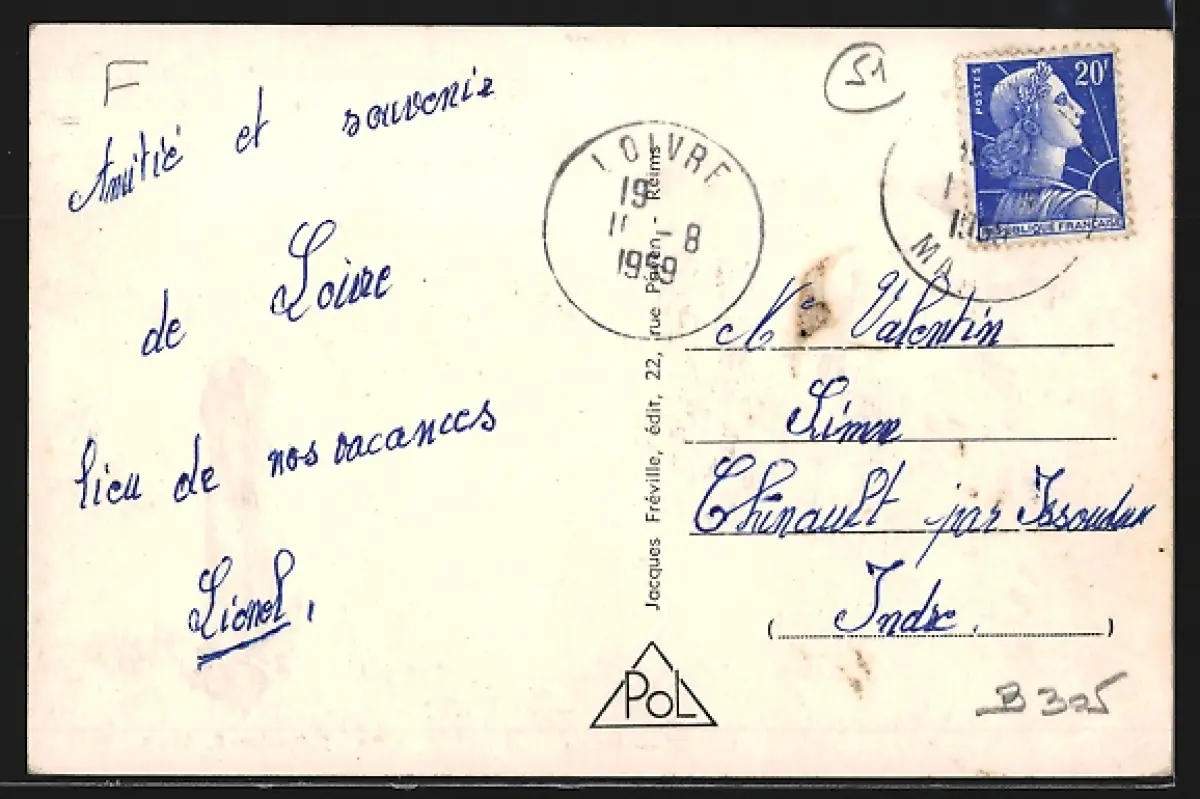 F
Amitié et souvenir
de Loivre
lieu de nos vacances
Lionel.
LOIVRE
19
11 - 8
1959
Jacques Fréville, édit, 22, rue Passen - Reims
POL
51
POSTES
20F
RÉPUBLIQUE FRANÇAISE
MA
Mr Valentin
Simon
Thinault par Issoudun
( Indre. )
B 305